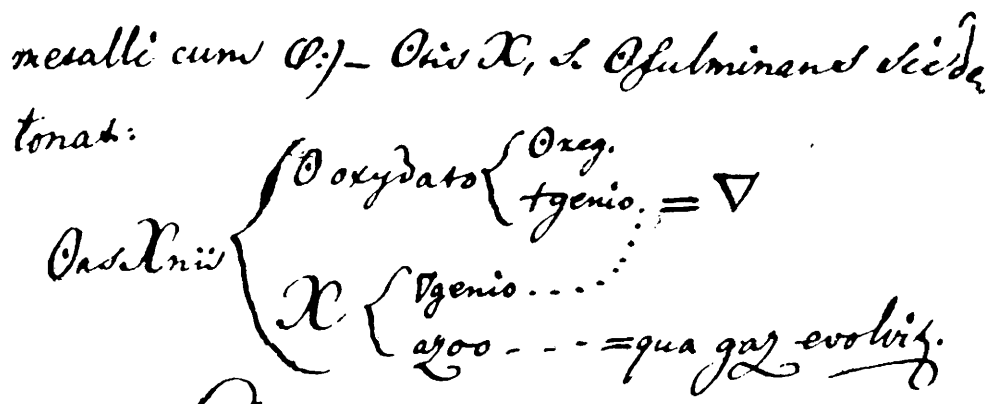 metalli cum ☿:)– ☉tis 𝔛, s. ☉fulminans sic de
tonat:
☉as𝔛nii
☉oxydato
☉reg.
+genio. = ▽
𝔛
▽genio....
azoo - - - =qua gaz evolvit.